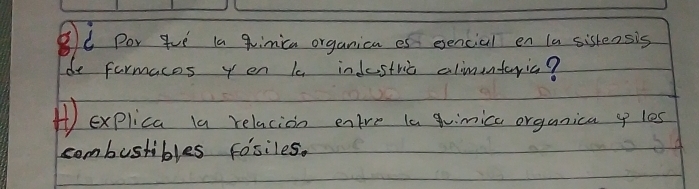 g) ¿ Por qué la química organica es esencial en la sisteosis
de farmacos y en la industria alimentaria?
H) explica la relación entre la química organica y los
combustibles fósiles.